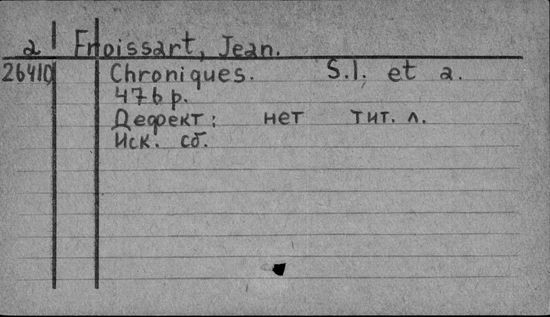 a Froissart, Jean.
26410 Chroniques. S.l. et a.
476 p.
Дефект: нет тит. л.
Иск. сб.